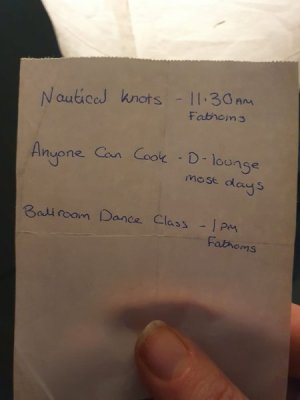 Nautical Knots - 11.30AM
Fathoms
Anyone Can Cook - D-lounge
most days
Ballroom Dance Class - 1PM
Fathoms